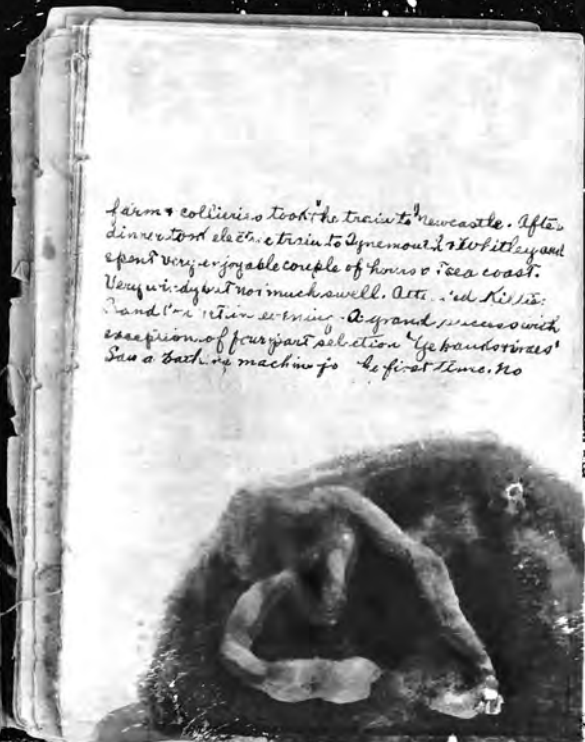 farm & collieries took the train to Newcastle. After
dinner took electric train to Tynemouth & Whitley and
spent very enjoyable couple of hours sea coast.
Very windy but not much swell. Kilties
Band in evening. A grand success with
exception of four part selection "Ye banks & braes"
Saw a bathing machine for the first time. No